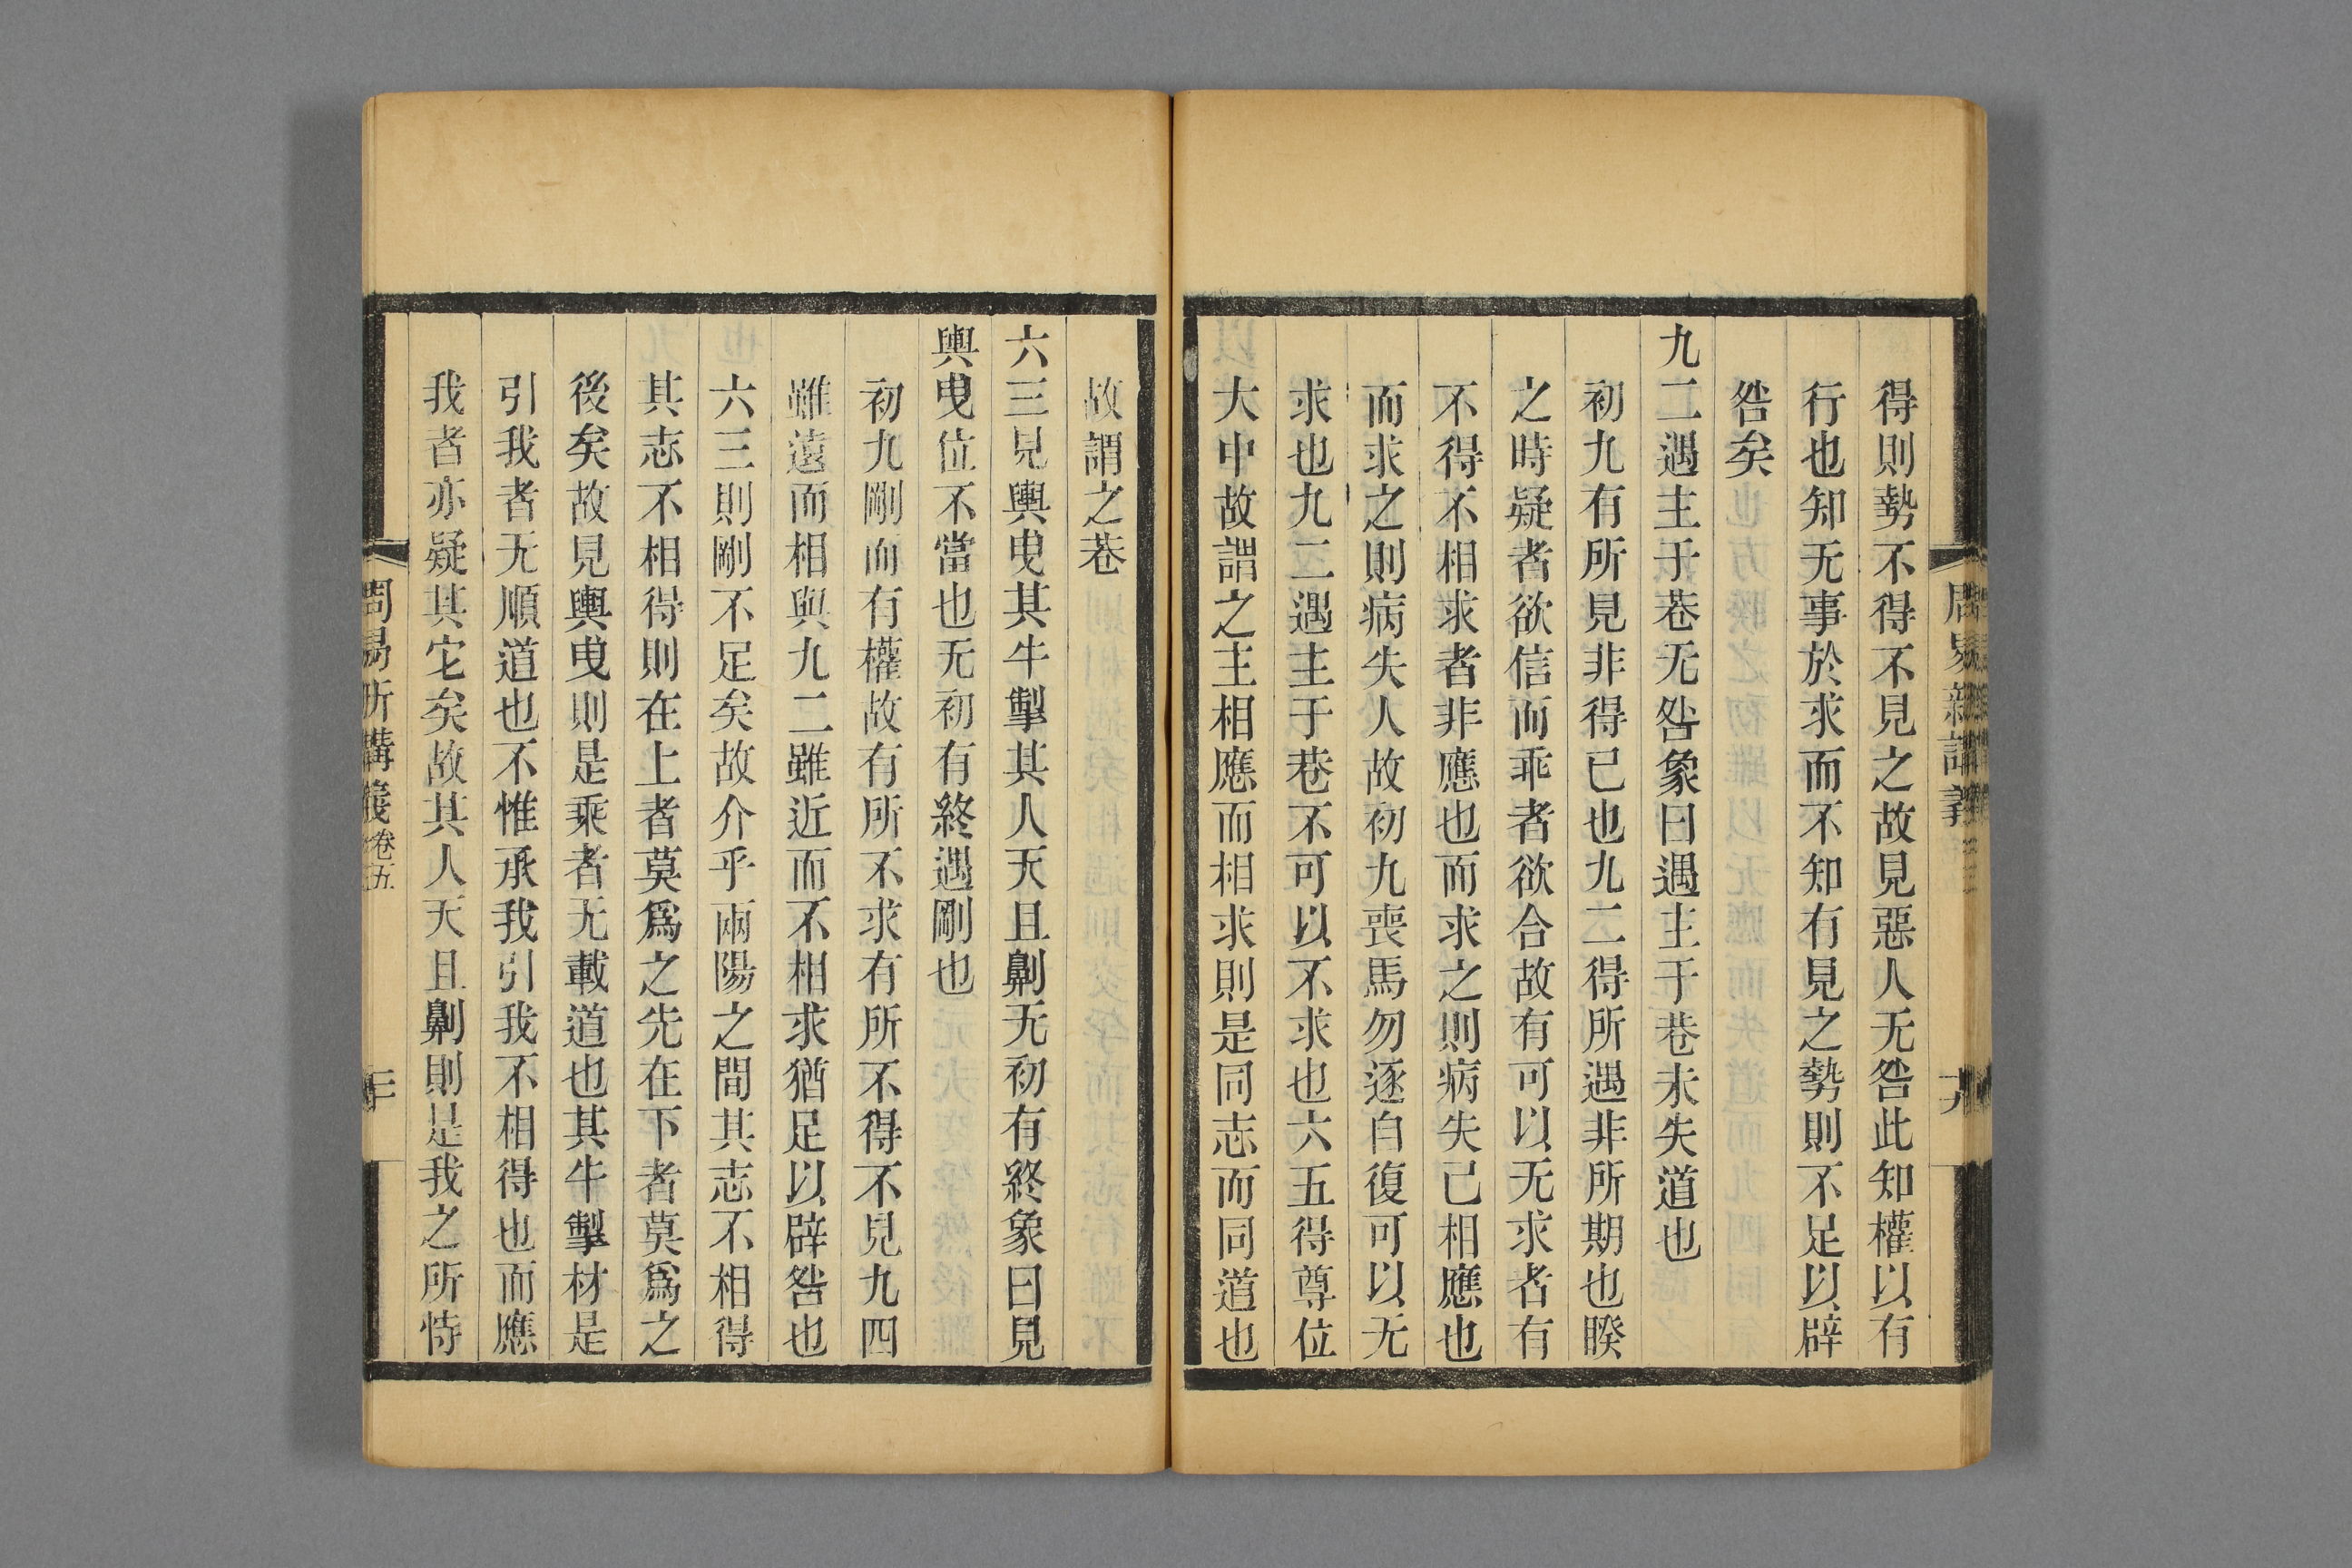 得則勢不得不見之故見惡人无咎此知權以有
行也知无事於求而不知有見之勢則不足以辟
咎矣
九二遇主于巷无咎象曰遇主于巷未失道也
初九有所見非得已也九二得所遇非所期也睽
之時疑者欲信而乖者欲合故有可以无求者有
不得不相求者非應也而求之則病失己相應也
而求之則病失人故初九喪馬勿逐自復可以无
求也九二遇主于巷不可以不求也六五得尊位
大中故謂之主相應而相求則是同志而同道也
故謂之巷
六三見輿曳其牛掣其人天且劓无初有終象曰見
輿曳位不當也无初有終遇剛也
初九剛而有權故有所不求有所不得不見九四
雖遠而相與九二雖近而不相求猶足以辟咎也
六三則剛不足矣故介乎兩陽之間其志不相得
其志不相得則在上者莫爲之先在下者莫爲之
後矣故見輿曳則是乘者无載道也其牛掣材是
引我者无順道也不惟承我引我不相得也而應
我者亦疑其它矣故其人天且劓則是我之所恃
周易新講義卷五